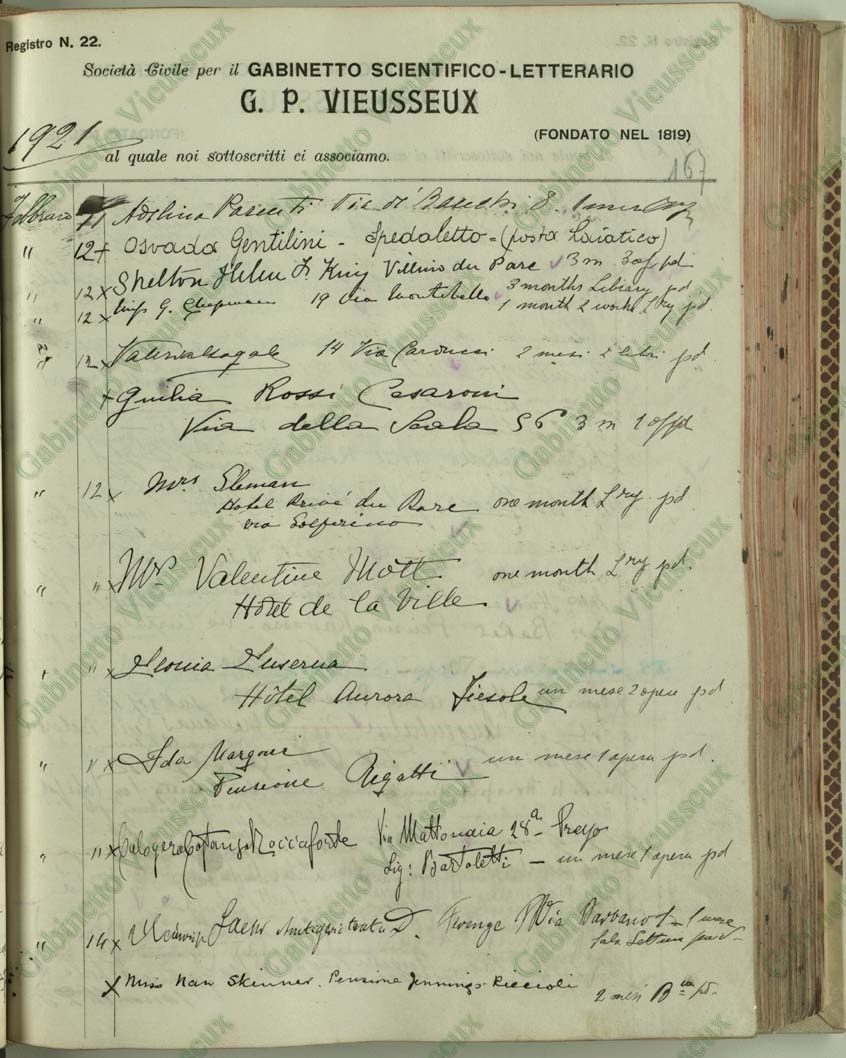 Registro N. 22.
Società Civile per il GABINETTO SCIENTIFICO-LETTERARIO
G. P. VIEUSSEUX
(FONDATO NEL 1819)
1921
al quale noi sottoscritti ci associamo.
167
Febbraio 11 Adelina Parenti Via de' Banchi 8.
" 12 + Osvada Gentilini - Spedaletto - (posta Laiatico)
" 12 x Shelton Helen F. King Villino du Parc 3 m 3 of pd
3 months Library pd
" 12 x Miss G. Chapman 19 Via Montebello 1 month 2 works Lry pd.
12 x 14 Via Carducci 2 mesi 2 libri pd
x Giulia Rossi Casaroni
Via della Scala 56 3 m 1 of pd
" 12 x Mrs Sleman
Hotel Privé du Parc one month Lry pd
via Solferino
" " x Mrs Valentine Mott one month Lry pd.
Hôtel de la Ville
" " x Leonia Luserna
Hôtel Aurora Fiesole un mese 2 opere pd
" " x Ida Margoni un mese 1 opera pd.
Pensione Rigatti
" " x Calogera Roccaforte Via Mattonaia 28a
Sig: Bartoletti - un mese 1 opera pd
" 14 x D. Via 1 mese
Sala Lettura
x Miss Nan Skinner. Pensione Jennings-Riccioli
2 mesi pd.